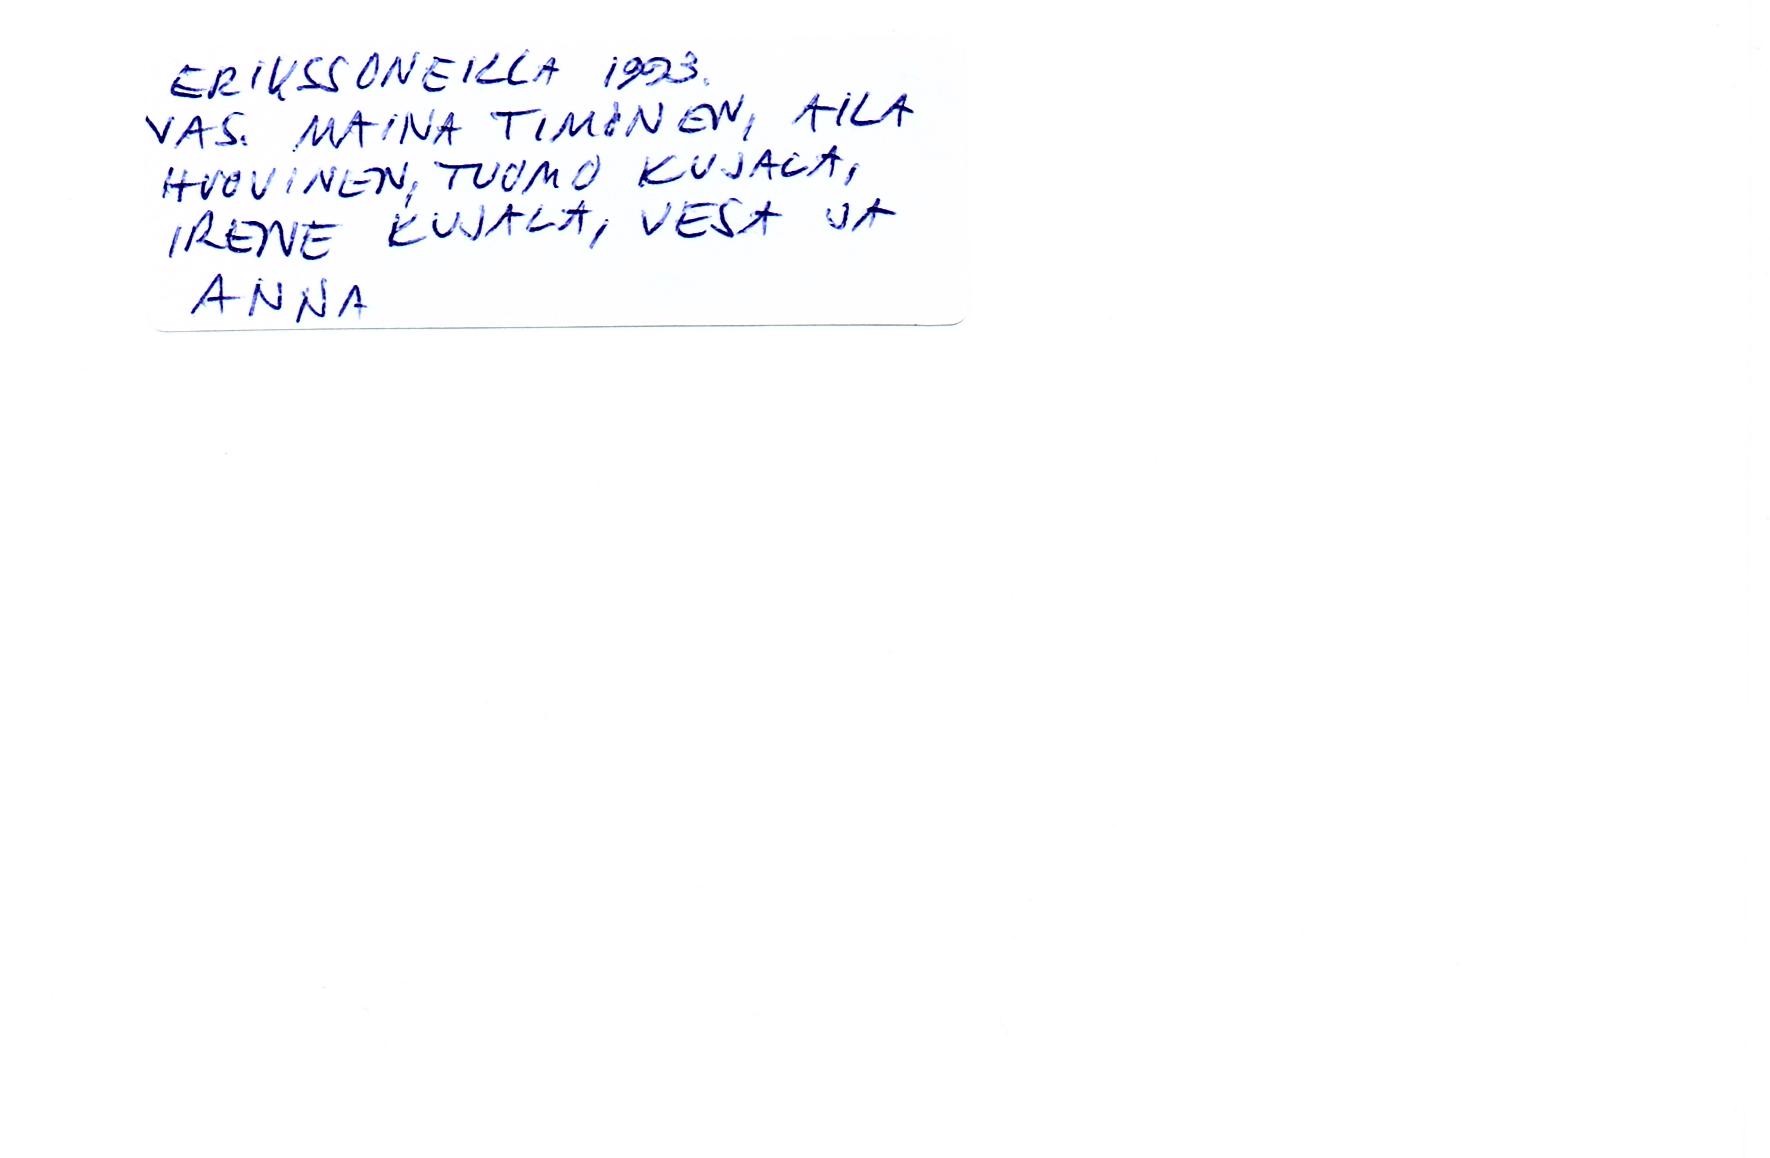 ERIKSSONEILLA 1993.
VAS. MAINA TIMONEN, AILA
HUOVINEN, TUOMO KUJALA,
IRENE KUJALA, VESA JA
ANNA